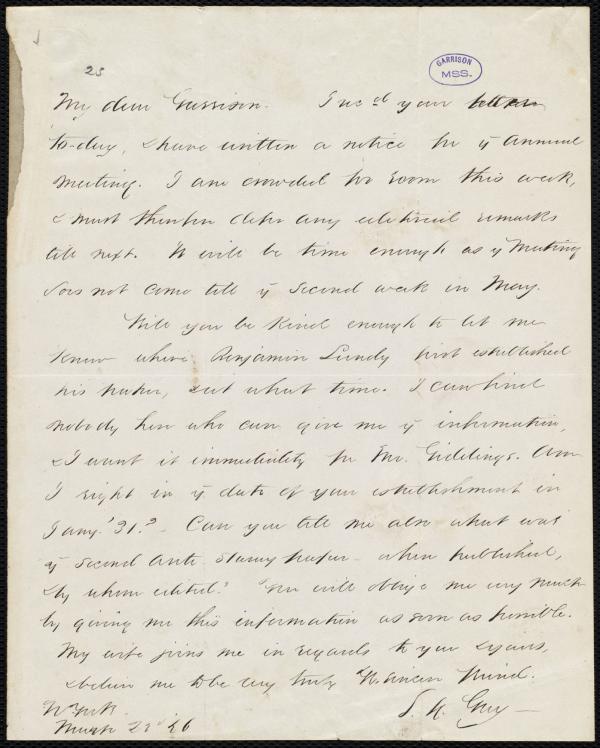 25
GARRISON
MSS.
My dear Garrison. I recd your letter
to-day, & have written a notice for ye Annual
Meeting. I am crowded for room this week,
& must therefore defer any editorial remarks
till next. It will be time enough as ye Meeting
does not come till ye second week in May.
Will you be kind enough to let me
know where Benjamin Lundy first established
his paper, & at what time. I can find
nobody here who can give me ye information,
& I want it immediately for Mr. Giddings. Am
I right in ye date of your establishment in
Jany. '31.? Can you tell me also what was
ye second Anti-Slavery paper - when published,
& by whom edited? You will oblige me very much
by giving me this information as soon as possible.
My wife joins me in regards to you & yours,
& believe me to be very truly Yr. sincere friend.
N. York S. H. Gay
March 25